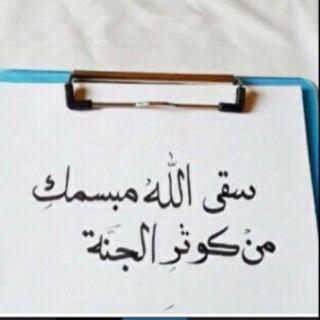 سقى اللهُ مبسمكِ
من كوثرِ الجنَّة